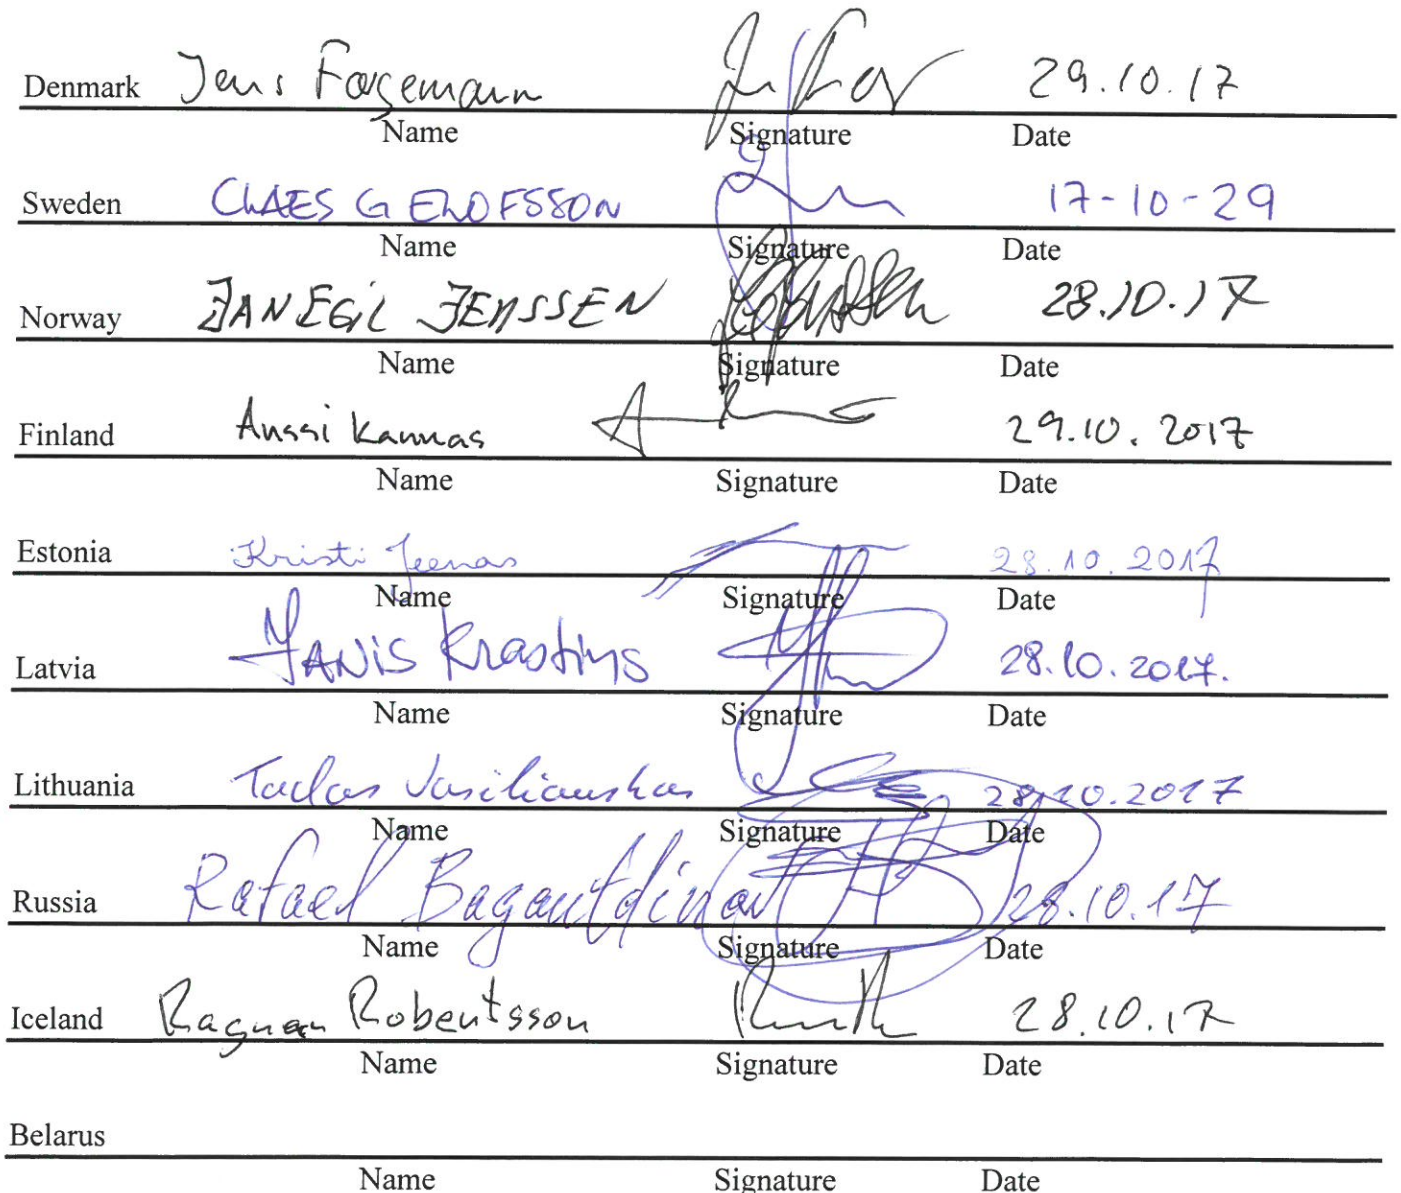 Denmark Jens Fargemann 29.10.17
Name Signature Date
Sweden CLAES G ELOFSSON 17-10-29
Name Signature Date
Norway JAN EGIL JENSSEN 28.10.17
Name Signature Date
Finland Anssi Kannas 29.10.2017
Name Signature Date
Estonia Kristi Jeenas 28.10.2017
Name Signature Date
Latvia JANIS Krastiņš 28.10.2017.
Name Signature Date
Lithuania Tadas Vasiliauskas 28.10.2017
Name Signature Date
Russia Rafael Bagautdinov 28.10.17
Name Signature Date
Iceland Ragnar Robertsson 28.10.17
Name Signature Date
Belarus
Name Signature Date